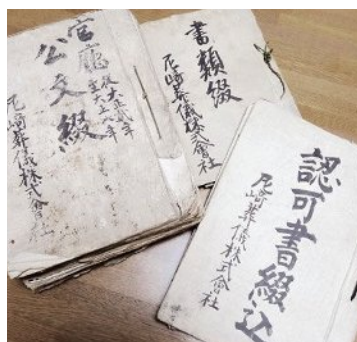 官廳
公文綴
従大正貳年
至大正八年
尼崎葬儀株式會社
書類綴
尼崎葬儀株式會社
認可書綴込
尼崎葬儀株式會社